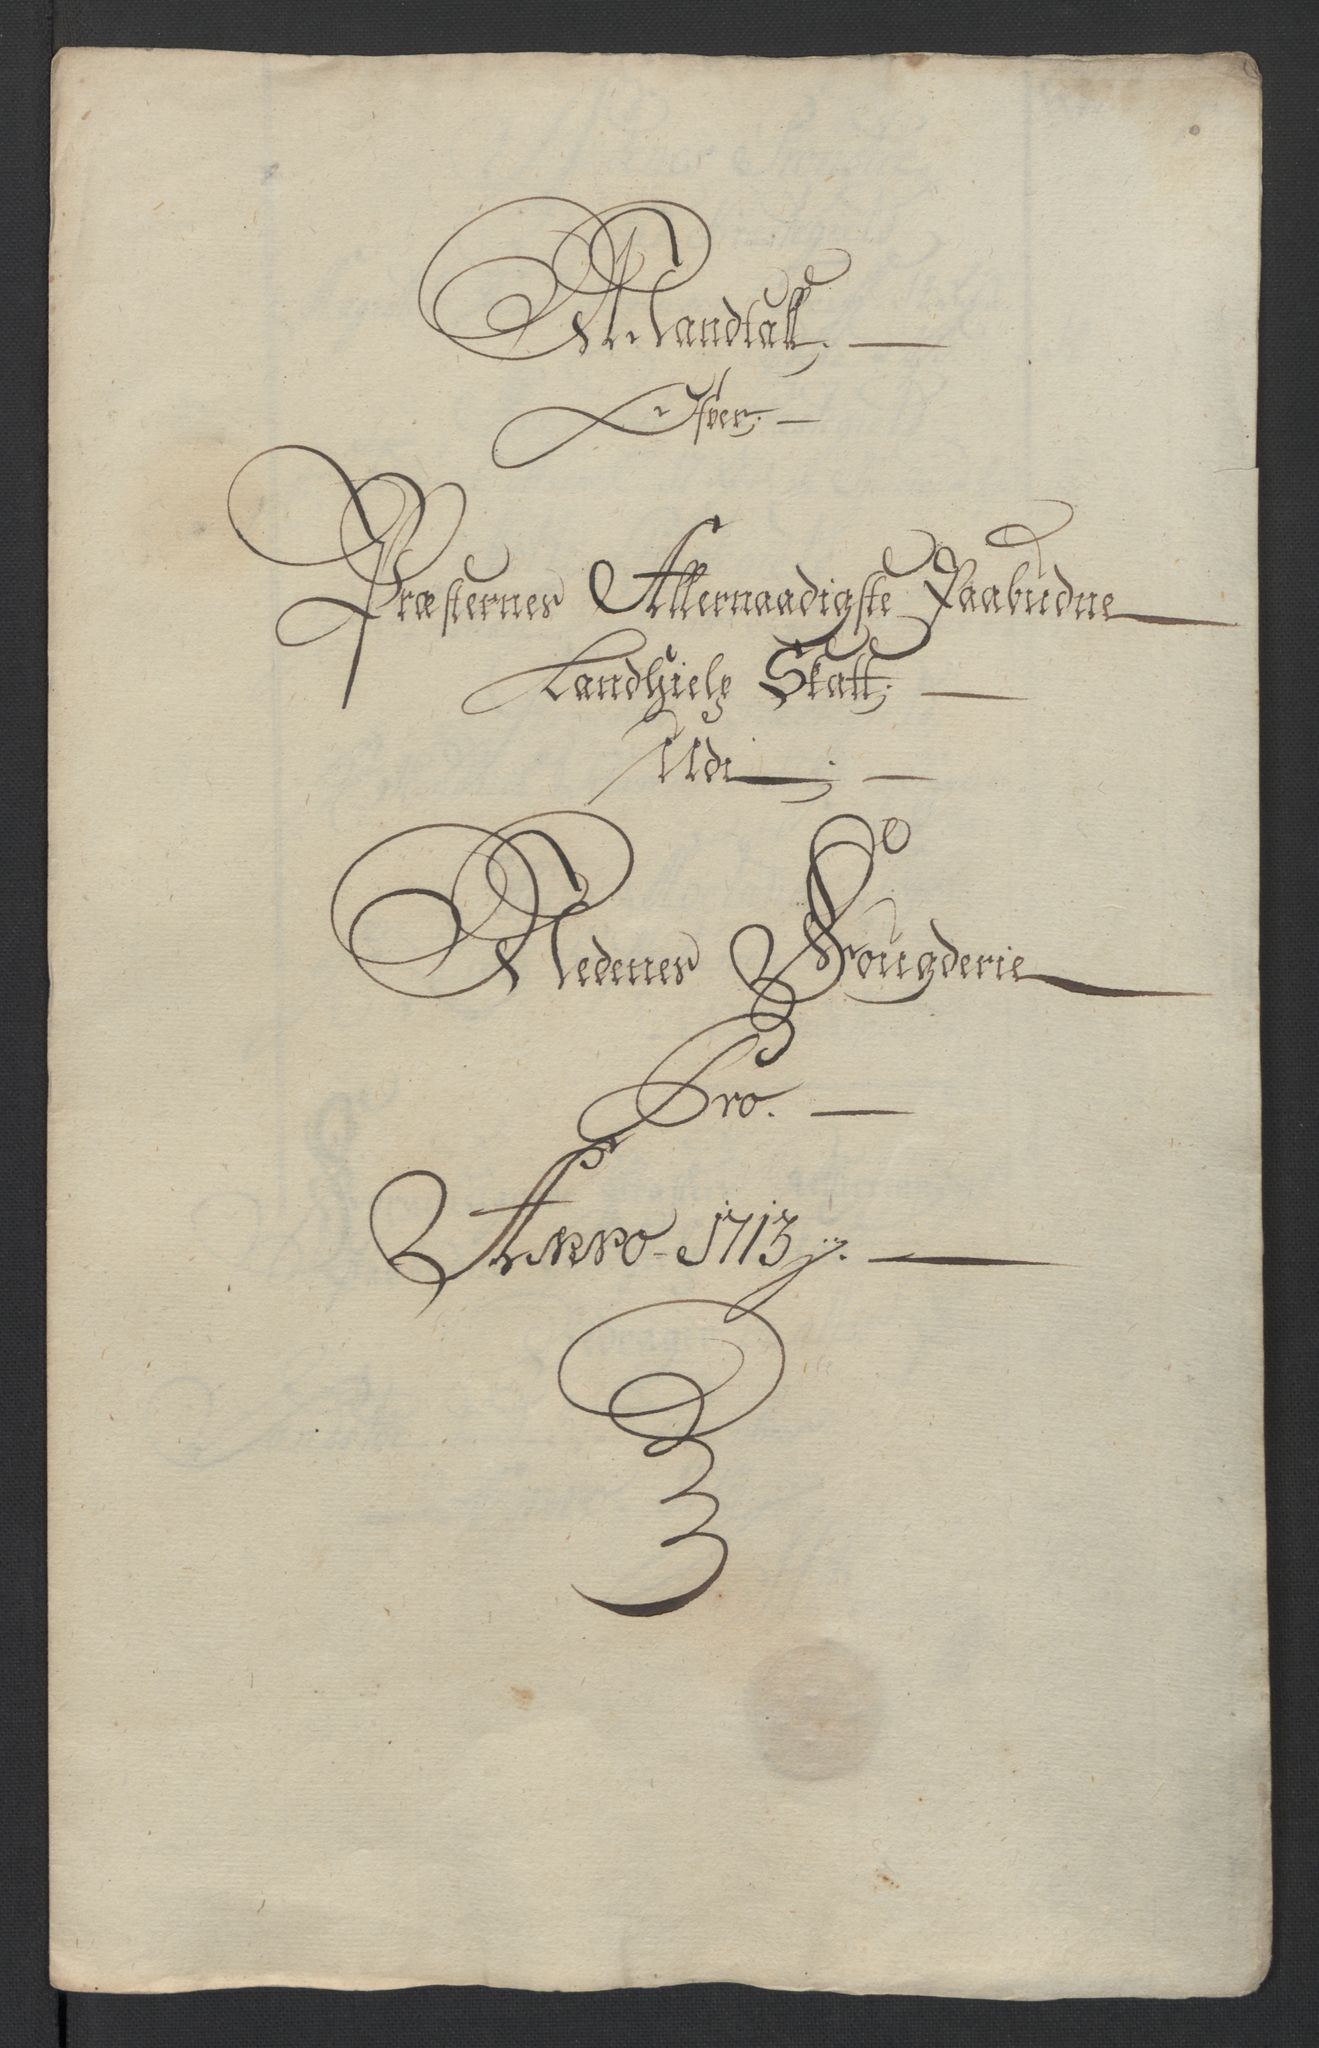 Mandtall
Ofver
Præsternes Allernaadigste Paabudne
Landhielp Skatt
Udi
Nedenes Fougderie
Pro.
Anno 1713